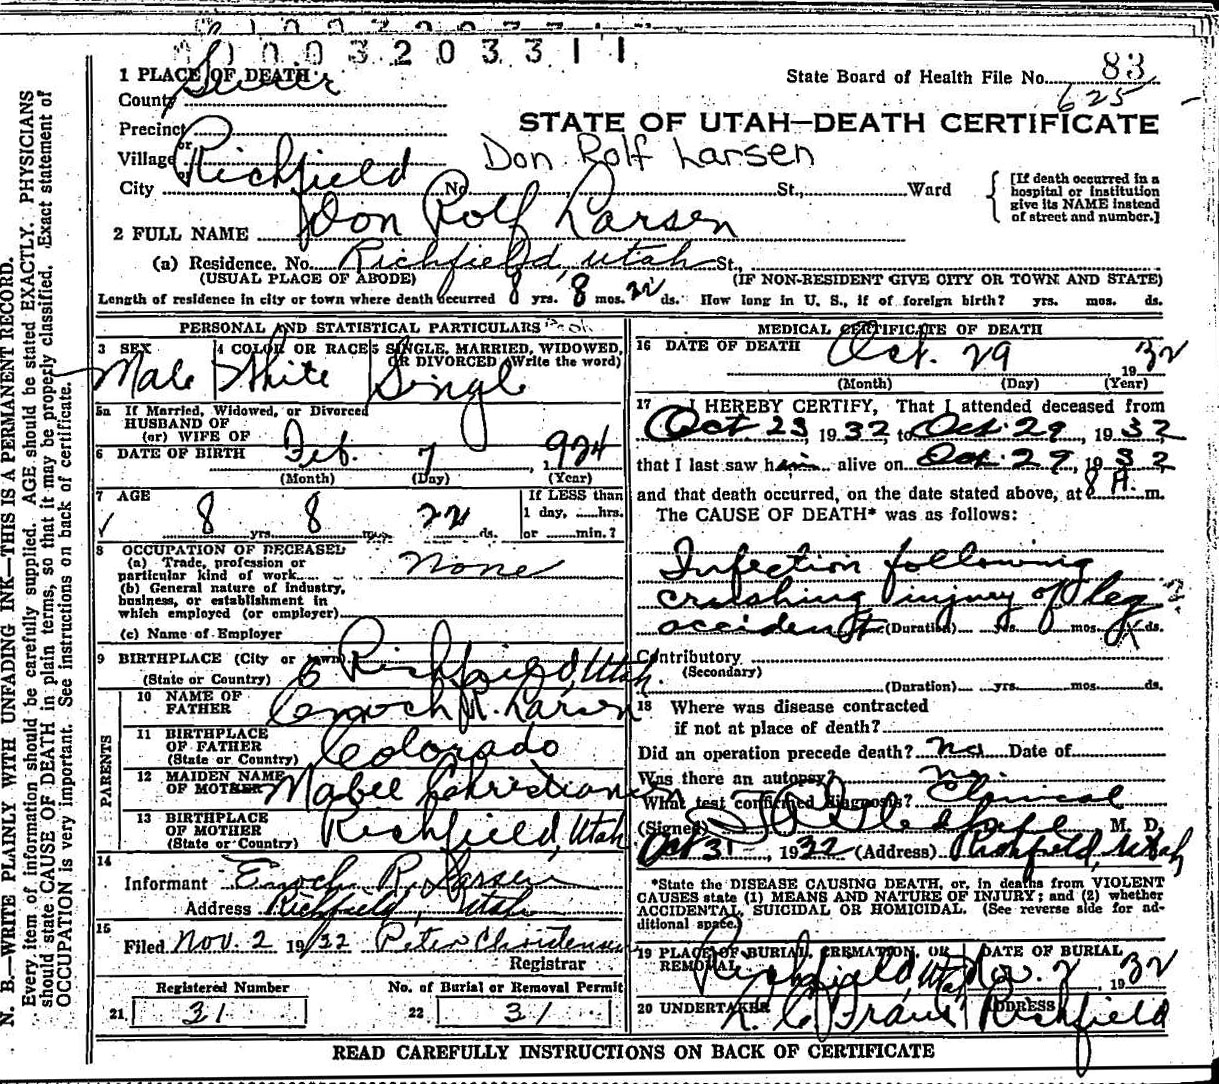 1003203311
1 PLACE OF DEATH
State Board of Health File No. 83
County Sevier
625
Precinct
STATE OF UTAH—DEATH CERTIFICATE
or
Village
Don Rolf Larsen
City Richfield No. St., Ward
[If death occurred in a hospital or institution give its NAME instead of street and number.]
2 FULL NAME Don Rolf Larsen
(a) Residence. No. Richfield, Utah St.,
(USUAL PLACE OF ABODE) (IF NON-RESIDENT GIVE CITY OR TOWN AND STATE)
Length of residence in city or town where death occurred 8 yrs. 8 mos. 22 ds. How long in U. S., if of foreign birth? yrs. mos. ds.
PERSONAL AND STATISTICAL PARTICULARS
3 SEX Male
4 COLOR OR RACE White
5 SINGLE, MARRIED, WIDOWED, OR DIVORCED (Write the word) Single
5a If Married, Widowed, or Divorced
HUSBAND OF
(or) WIFE OF
6 DATE OF BIRTH Feb. 7, 1924
(Month) (Day) (Year)
7 AGE 8 yrs. 8 mos. 22 ds.
If LESS than
1 day, ___hrs.
or ___min.?
8 OCCUPATION OF DECEASED
(a) Trade, profession or
particular kind of work None
(b) General nature of industry,
business, or establishment in
which employed (or employer)
(c) Name of Employer
9 BIRTHPLACE (City or town) Richfield, Utah.
(State or Country)
PARENTS
10 NAME OF FATHER Enoch R. Larsen
11 BIRTHPLACE OF FATHER Colorado
(State or Country)
12 MAIDEN NAME OF MOTHER Mabel Christiansen
13 BIRTHPLACE OF MOTHER Richfield, Utah
(State or Country)
14
Informant Enoch R. Larsen
Address Richfield, Utah
15
Filed Nov. 2 1932 Peter Christensen
Registrar
Registered Number
21 31
No. of Burial or Removal Permit
22 31
MEDICAL CERTIFICATE OF DEATH
16 DATE OF DEATH Oct. 29 1932
(Month) (Day) (Year)
17 I HEREBY CERTIFY, That I attended deceased from
Oct 23, 1932, to Oct. 29, 1932
that I last saw him alive on Oct. 29, 1932
and that death occurred, on the date stated above, at 8 A. m.
The CAUSE OF DEATH* was as follows:
Infection following
crushing injury of leg
accident (Duration) yrs. mos. ds.
Contributory
(Secondary)
(Duration) yrs. mos. ds.
18 Where was disease contracted
if not at place of death?
Did an operation precede death? no Date of
Was there an autopsy? no
What test confirmed diagnosis? Clinical
(Signed) M. D.
Oct 31, 1932 (Address) Richfield, Utah
*State the DISEASE CAUSING DEATH, or, in deaths from VIOLENT
CAUSES state (1) MEANS AND NATURE OF INJURY; and (2) whether
ACCIDENTAL, SUICIDAL OR HOMICIDAL. (See reverse side for ad-
ditional space.)
19 PLACE OF BURIAL, CREMATION, OR REMOVAL Richfield, Utah
DATE OF BURIAL Nov. 2, 1932
20 UNDERTAKER
ADDRESS Richfield
READ CAREFULLY INSTRUCTIONS ON BACK OF CERTIFICATE
N. B.—WRITE PLAINLY WITH UNFADING INK—THIS IS A PERMANENT RECORD.
Every item of information should be carefully supplied. AGE should be stated EXACTLY. PHYSICIANS
should state CAUSE OF DEATH in plain terms, so that it may be properly classified. Exact statement of
OCCUPATION is very important. See instructions on back of certificate.